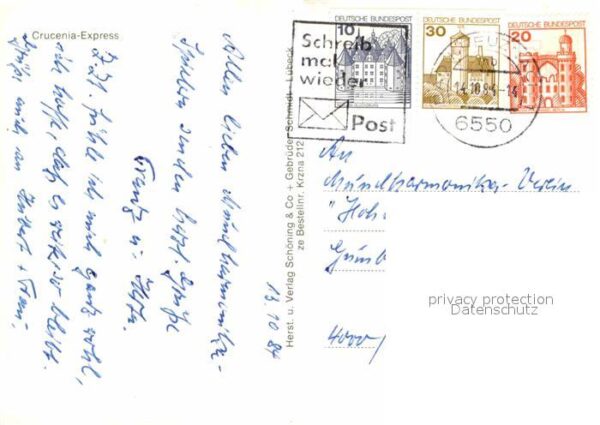 Crucenia-Express
13.10.84
Allen lieben Mundharmonika-
Spielern senden herzl. Grüße
Franz u.
Z.Zt. fühle ich mich ganz wohl,
ich hoffe, daß es weiter so bleibt.
Grüße auch an Hubert + Franz.
Herst. u. Verlag Schöning & Co + Gebrüder Schmidt, Lübeck
ze Bestellnr. Krzna 212
Schreib
mal
wieder
Post
10 DEUTSCHE BUNDESPOST
30 DEUTSCHE BUNDESPOST
DEUTSCHE BUNDESPOST 20
14.10.84-14
6550
An
Mundharmonika-Verein
"Hoh
Gumb
privacy protection
Datenschutz